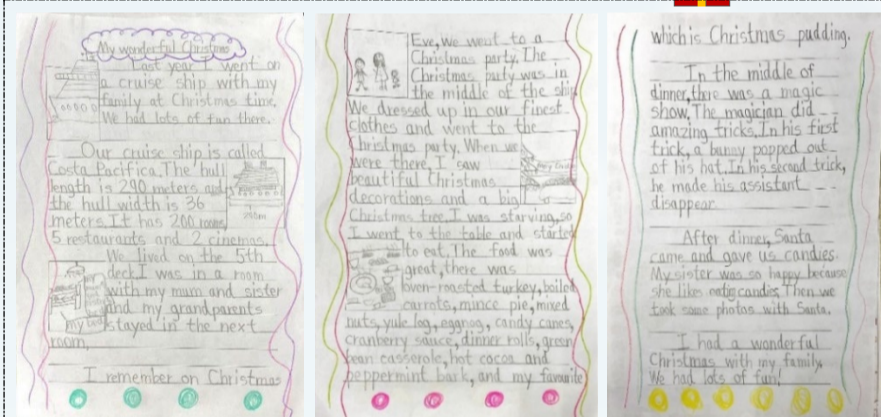 My wonderful Christmas
Last year I went on
a cruise ship with my
family at Christmas time.
We had lots of fun there.
Our cruise ship is called
Costa Pacifica. The hull
length is 290 meters and
the hull width is 36
meters. It has 200 rooms,
5 restaurants and 2 cinemas.
We lived on the 5th
deck. I was in a room
with my mum and sister
and my grandparents
stayed in the next
room.
I remember on Christmas
Eve, We went to a
Christmas party. The
Christmas party was in
the middle of the ship
We dressed up in our finest
clothes and went to the
Christmas party. When we
were there, I saw
beautiful Christmas
decorations and a big
Christmas tree. I was starving, so
I went to the table and started
to eat. The food was
great, there was
oven-roasted turkey, boiled
carrots, mince pie, mixed
nuts, yule log, eggnog, candy canes,
cranberry sauce, dinner rolls, green
bean casserole, hot cocoa and
peppermint bark, and my favourite
which is Christmas pudding.
In the middle of
dinner, there was a magic
show. The magician did
amazing tricks. In his first
trick, a bunny popped out
of his hat. In his second trick,
he made his assistant
disappear
After dinner, Santa
came and gave us candies.
My sister was so happy because
she likes eatig candies. Then we
took some photos with Santa.
I had a wonderful
Christmas with my family.
We had lots of fun!